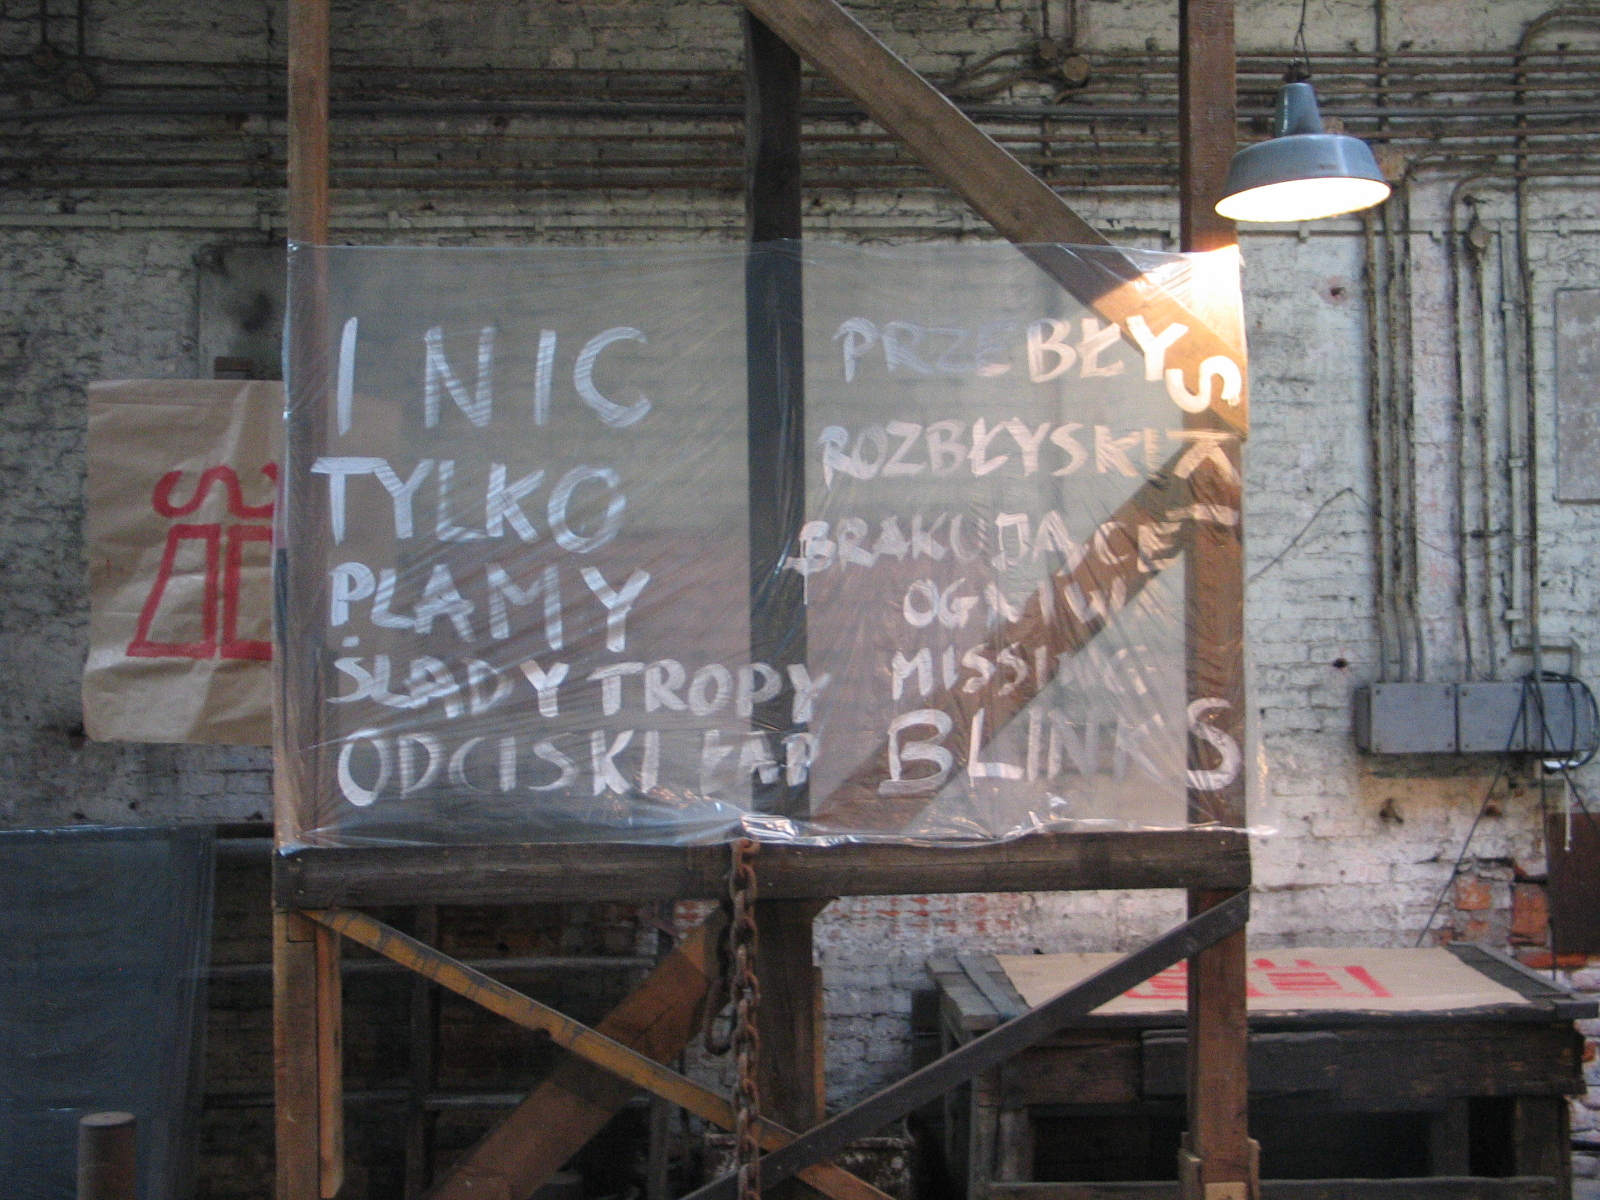 I NIC
TYLKO
PLAMY
ŚLADY TROPY
ODCISKI ŁAP
PRZEBŁYSKI
ROZBŁYSKI
BRAKUJĄCE
OGNIWA
MISSING
BLINKS